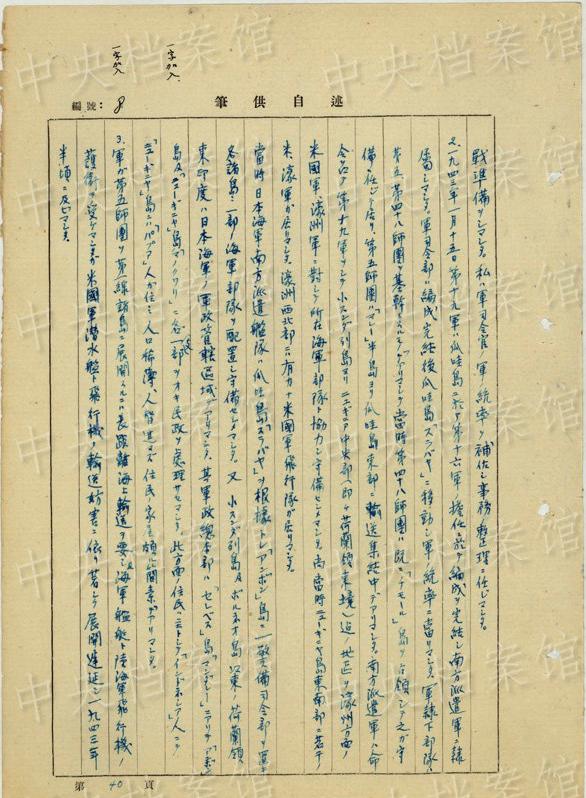 中央档案馆
一字加入
一字加入
編號：8
述自供筆
戰準備ヲシマシタ。私ハ軍司令官ノ軍ノ統率ヲ補佐シ事務整理ニ任ジマシタ。
2.一九四三年一月十五日第十九軍ハ瓜哇島ニ於テ第十六軍ノ擔任ニ於テ編成ヲ完結シ南方派遣軍ニ隸
屬シマシタ。軍司令部ハ編成完結後瓜哇島「スラバヤ」ニ移動シ軍ノ統率ニ當リマシタ。軍隸下部隊ハ
第五、第四十八師團ヲ基幹トスルモノデアリマシタ。當時第四十八師團ハ既ニ「チモール」島ヲ占領シアッテ之ガ守
備ニ任ジテ居リ、第五師團ハ「マレー」半島ヨリ瓜哇島東部ニ輸送集結中デアリマシタ。南方派遣軍ハ命
令シテ第十九軍ヲシテ小スンダ列島ヨリニューギニヤ中央部（即チ荷蘭領東境）迄ノ地區ヲ濠洲方面ノ
米國軍濠洲軍ニ對シテ所在海軍部隊ト協力シ守備セシメマシタ。尚當時ニューギニヤ島東南部ニ若干ノ
米、濠軍ガ居リマシタ。濠洲西北部ニハ有力ナ米國軍飛行隊ガ居リマシタ。
當時日本海軍ノ南方派遣艦隊ハ瓜哇島「スラバヤ」ヲ根據トシ「アンボン」島ニ一警備司令部ヲ置キ
各諸島ニ一部ノ海軍部隊ヲ配置シ守備セシメマシタ。又小スンダ列島及ボルネオ島以東ノ荷蘭領
東印度ハ日本海軍ノ軍政管轄區域デアリマシタ。其軍政總本部ハ「セレベス」島
島及「ニューギニヤ」島「マノクワリ」ニ各一部ヲオキ民政ヲ處理サセマシタ。此方面ノ住民ハ主トシテ「インドネシア」人ニテ
「ニューギニヤ」島ニハ「パプア」人ガ住ミ人口稀薄、人智進マズ住民ノ家屋頗ル簡素デアリマシタ。
3.軍ガ第五師團ヲ第一線諸島ニ展開スルニハ長距離海上輸送ヲ要シ海軍艦艇ト陸海軍飛行機ノ
護衛ヲ受ケマシタガ米國軍潛水艦ト飛行機ノ輸送妨害ニ依リ著シク展開遲延シ一九四三年
半頃ニ及ビマシタ。
第 40 頁